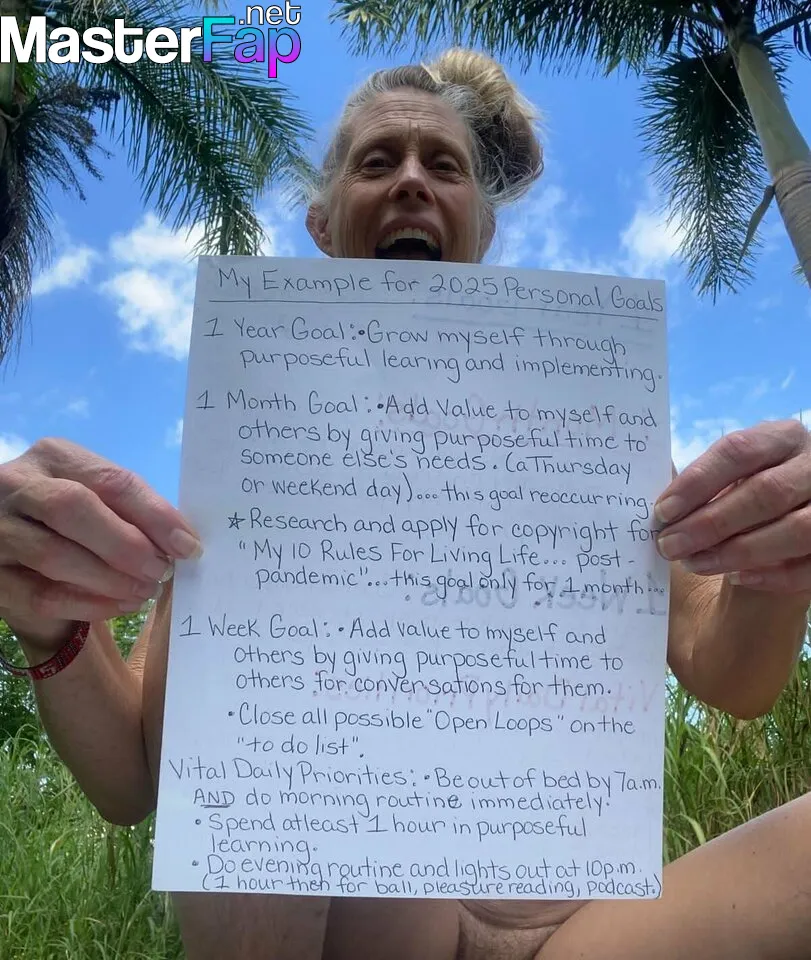 MasterFap.net
My Example for 2025 Personal Goals
1 Year Goal: • Grow myself through
purposeful learing and implementing.
1 Month Goal: • Add Value to myself and
others by giving purposeful time to
someone else's needs. (a Thursday
or weekend day)... this goal reoccurring.
☆ Research and apply for copyright for
"My 10 Rules For Living Life... post-
pandemic"... this goal only for 1 month...
1 Week Goal: • Add value to myself and
others by giving purposeful time to
others for conversations for them.
• Close all possible "Open Loops" on the
"to do list".
Vital Daily Priorities: • Be out of bed by 7a.m.
AND do morning routine immediately.
• Spend atleast 1 hour in purposeful
learning.
• Do evening routine and lights out at 10p.m.
(1 hour then for ball, pleasture reading, podcast.)